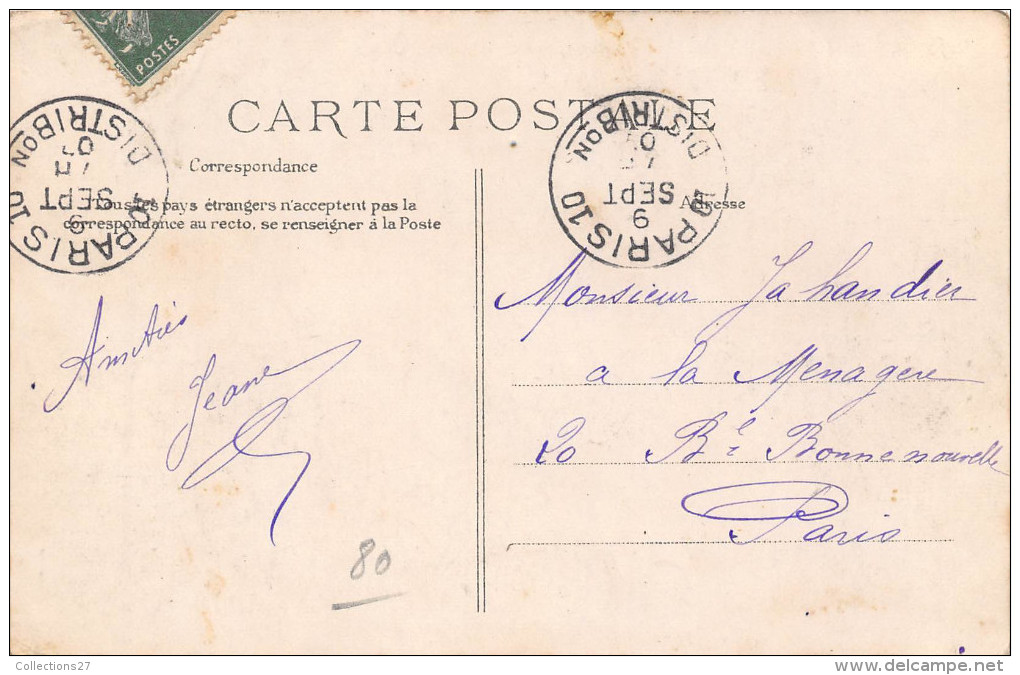 POSTES
CARTE POSTALE
Correspondance
Tous les pays étrangers n'acceptent pas la
correspondance au recto, se renseigner à la Poste
Adresse
PARIS 10
DISTRIBON
9
SEPT
07
PARIS 10
DISTRIBON
9
SEPT
07
Amitiés
Jeane
Monsieur Jahandier
a la Menagere
20 Bd Bonne nouvelle
Paris
80
Collections27
www.delcampe.net